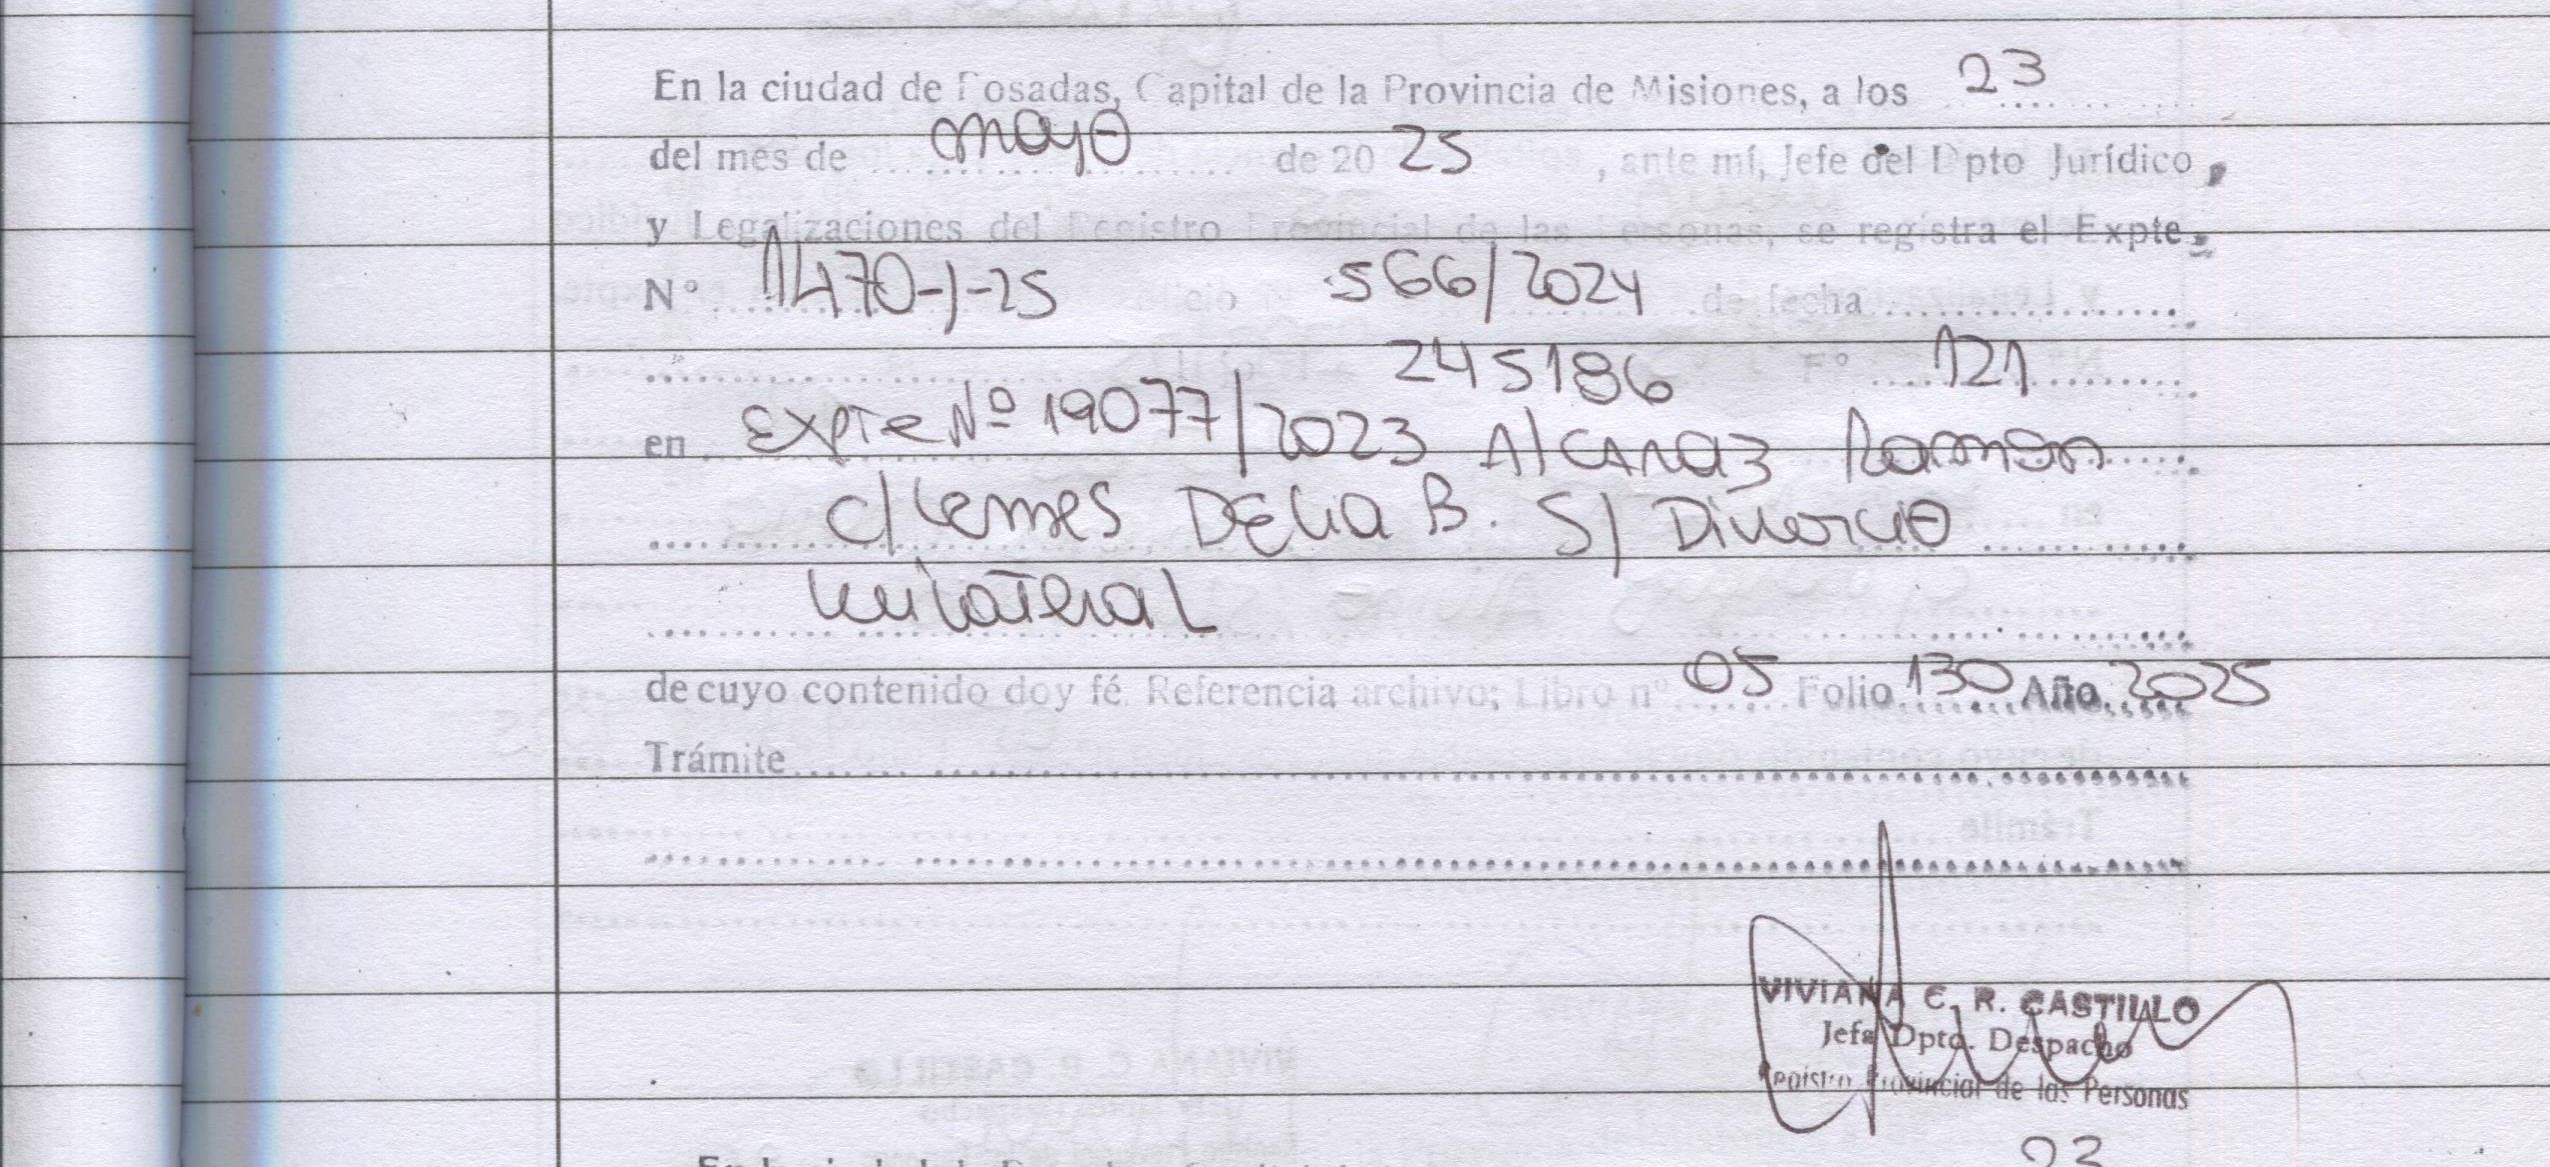 En la ciudad de Posadas, Capital de la Provincia de Misiones, a los 23
del mes de mayo de 2025, ante mí, Jefe del Dpto Jurídico,
y Legalizaciones del Registro Provincial de las Personas, se registra el Expte.
N° 1470-J-25 Oficio 566/2024 de fecha
245186 F° 121
en Expte Nº 19077/2023 Alcaraz Ramon
c/ Lemes DELia B. S/ Divorcio
unilateral
de cuyo contenido doy fé. Referencia archivo; Libro n° 05 Folio 130 Año 2025
Trámite
VIVIANA C. R. CASTILLO
Jefa Dpto. Despacho
Registro Provincial de las Personas
23